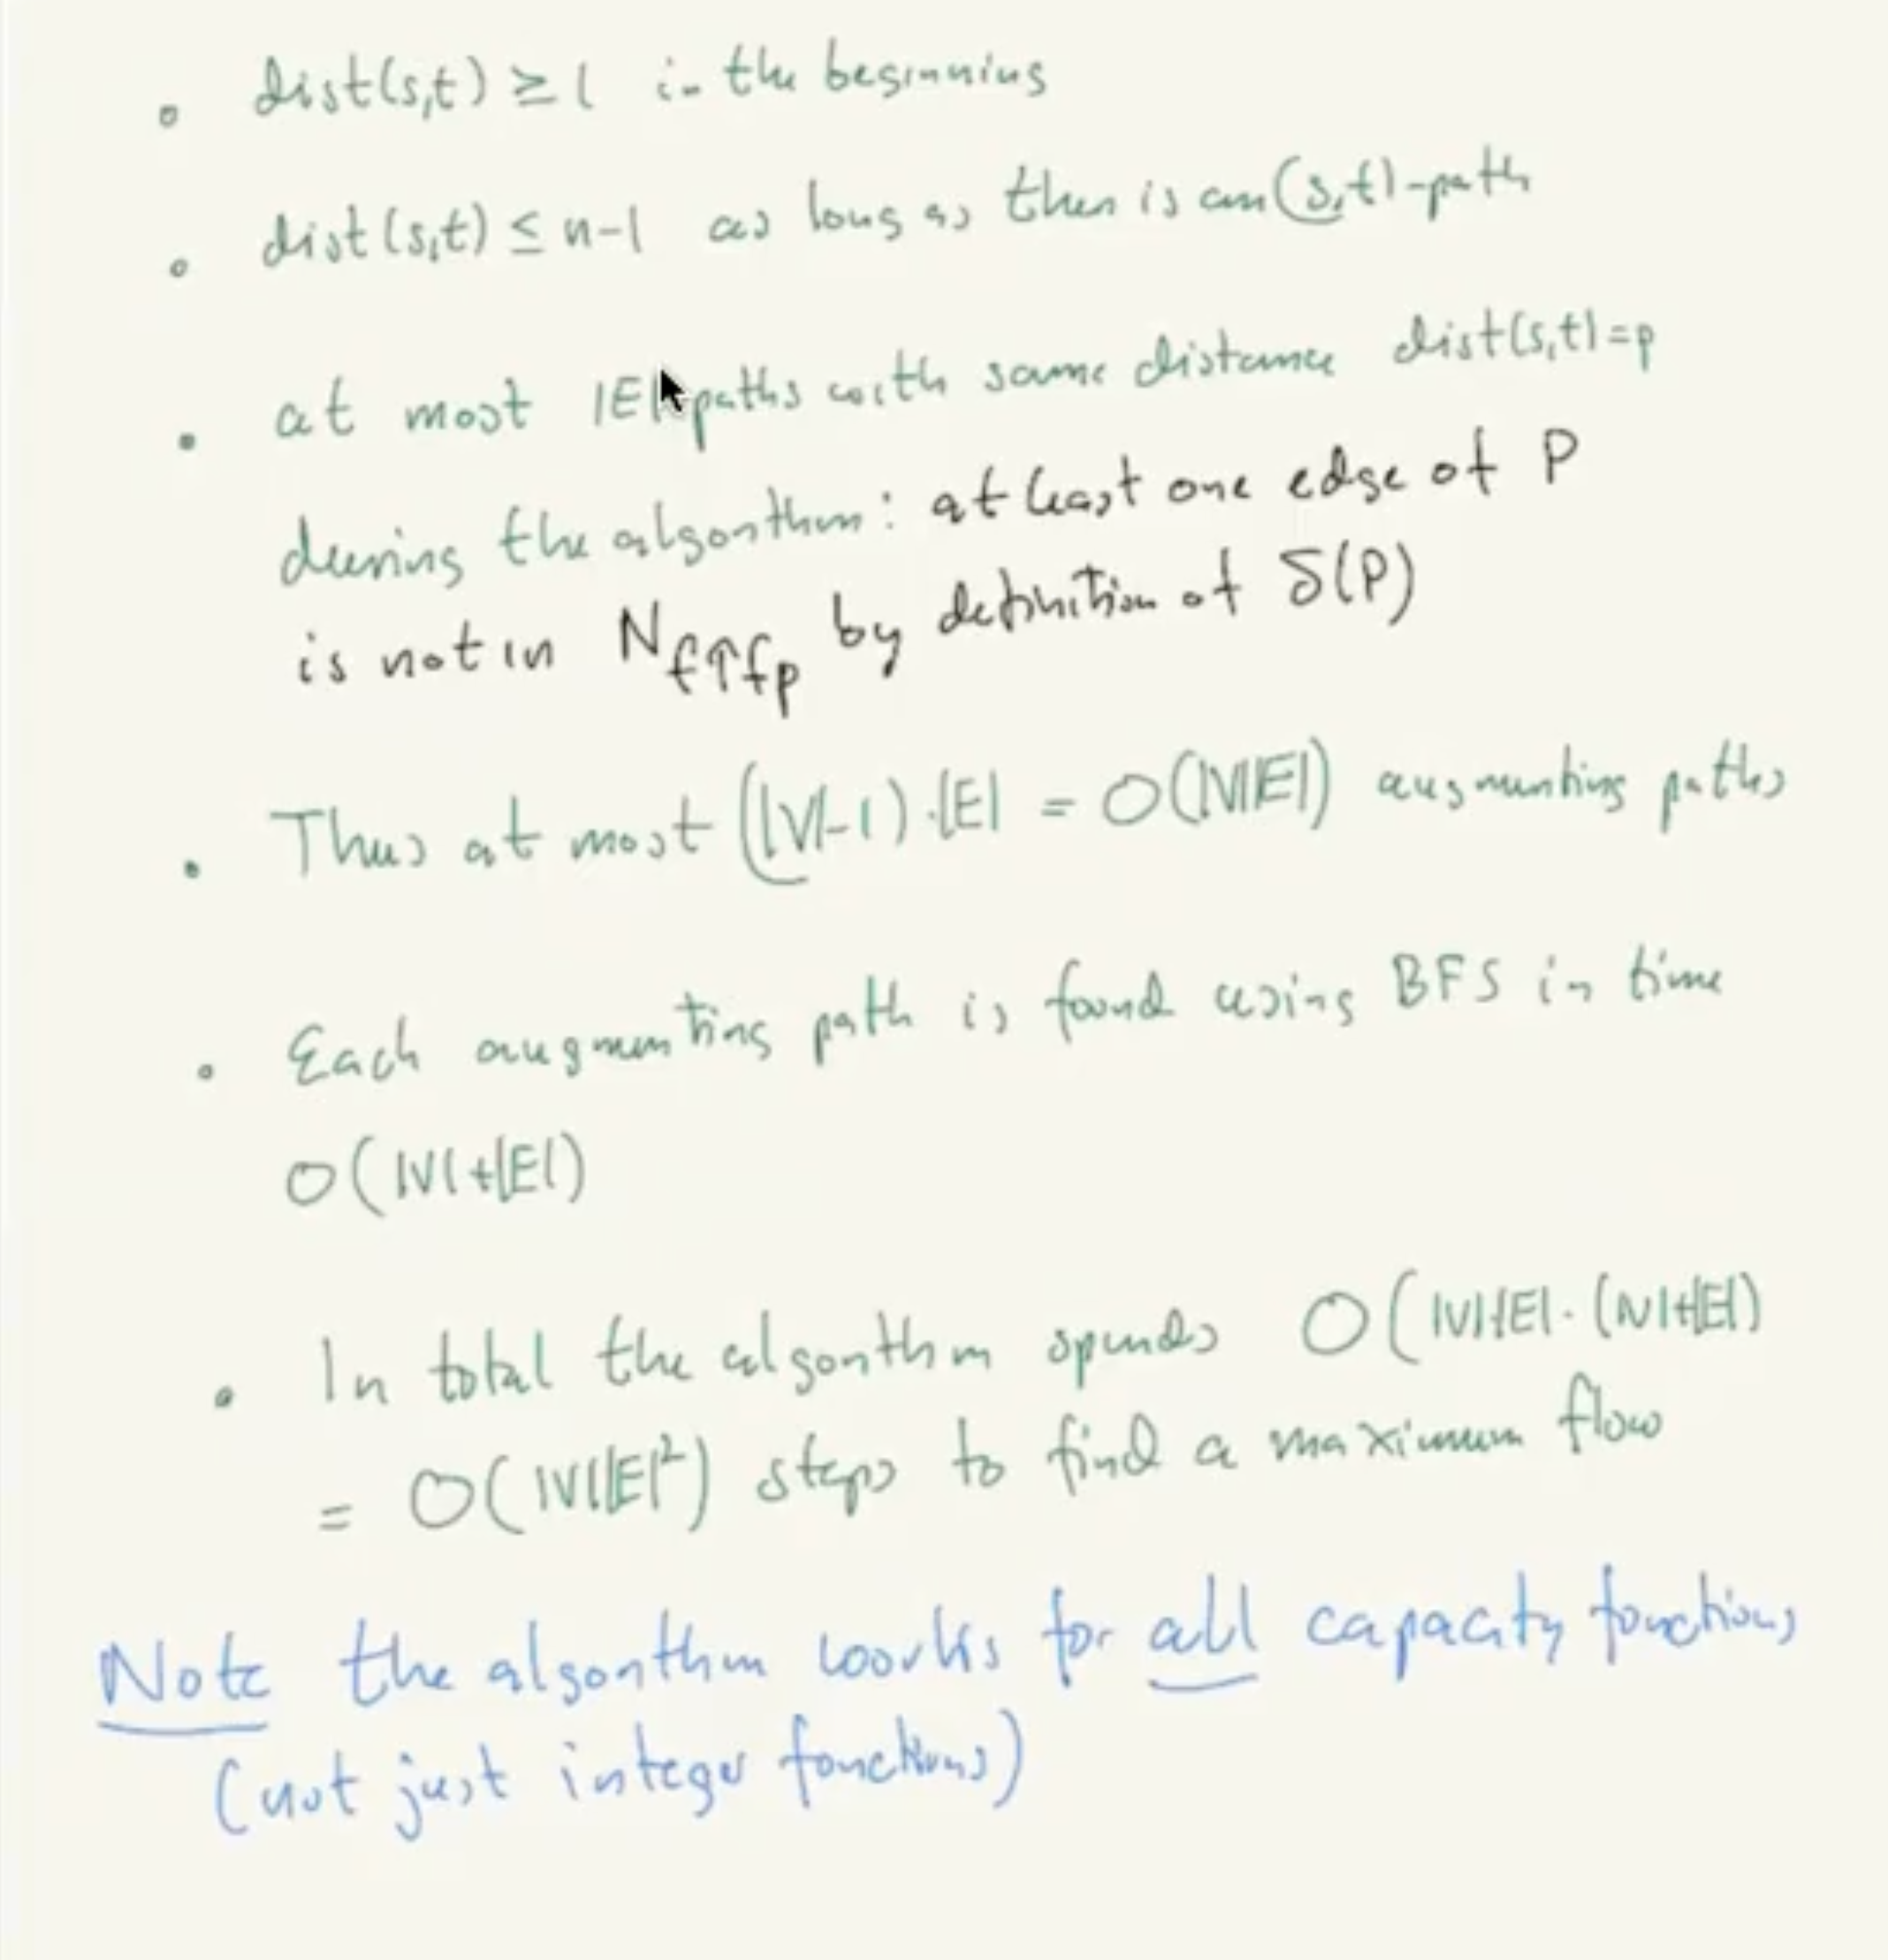 • dist(s,t) ≥ 1 in the beginning
• dist(s,t) ≤ n-1 as long as there is an (s,t)-path
• at most |E| paths with same distance dist(s,t)=p
during the algorithm: at least one edge of P
is not in N_{f↑f_p} by definition of δ(P)
• Thus at most (|V|-1)·|E| = O(|V||E|) augmenting paths
• Each augmenting path is found using BFS in time
O(|V|+|E|)
• In total the algorithm spends O(|V||E|·(|V|+|E|)
= O(|V||E|²) steps to find a maximum flow
Note the algorithm works for all capacity functions
(not just integer functions)